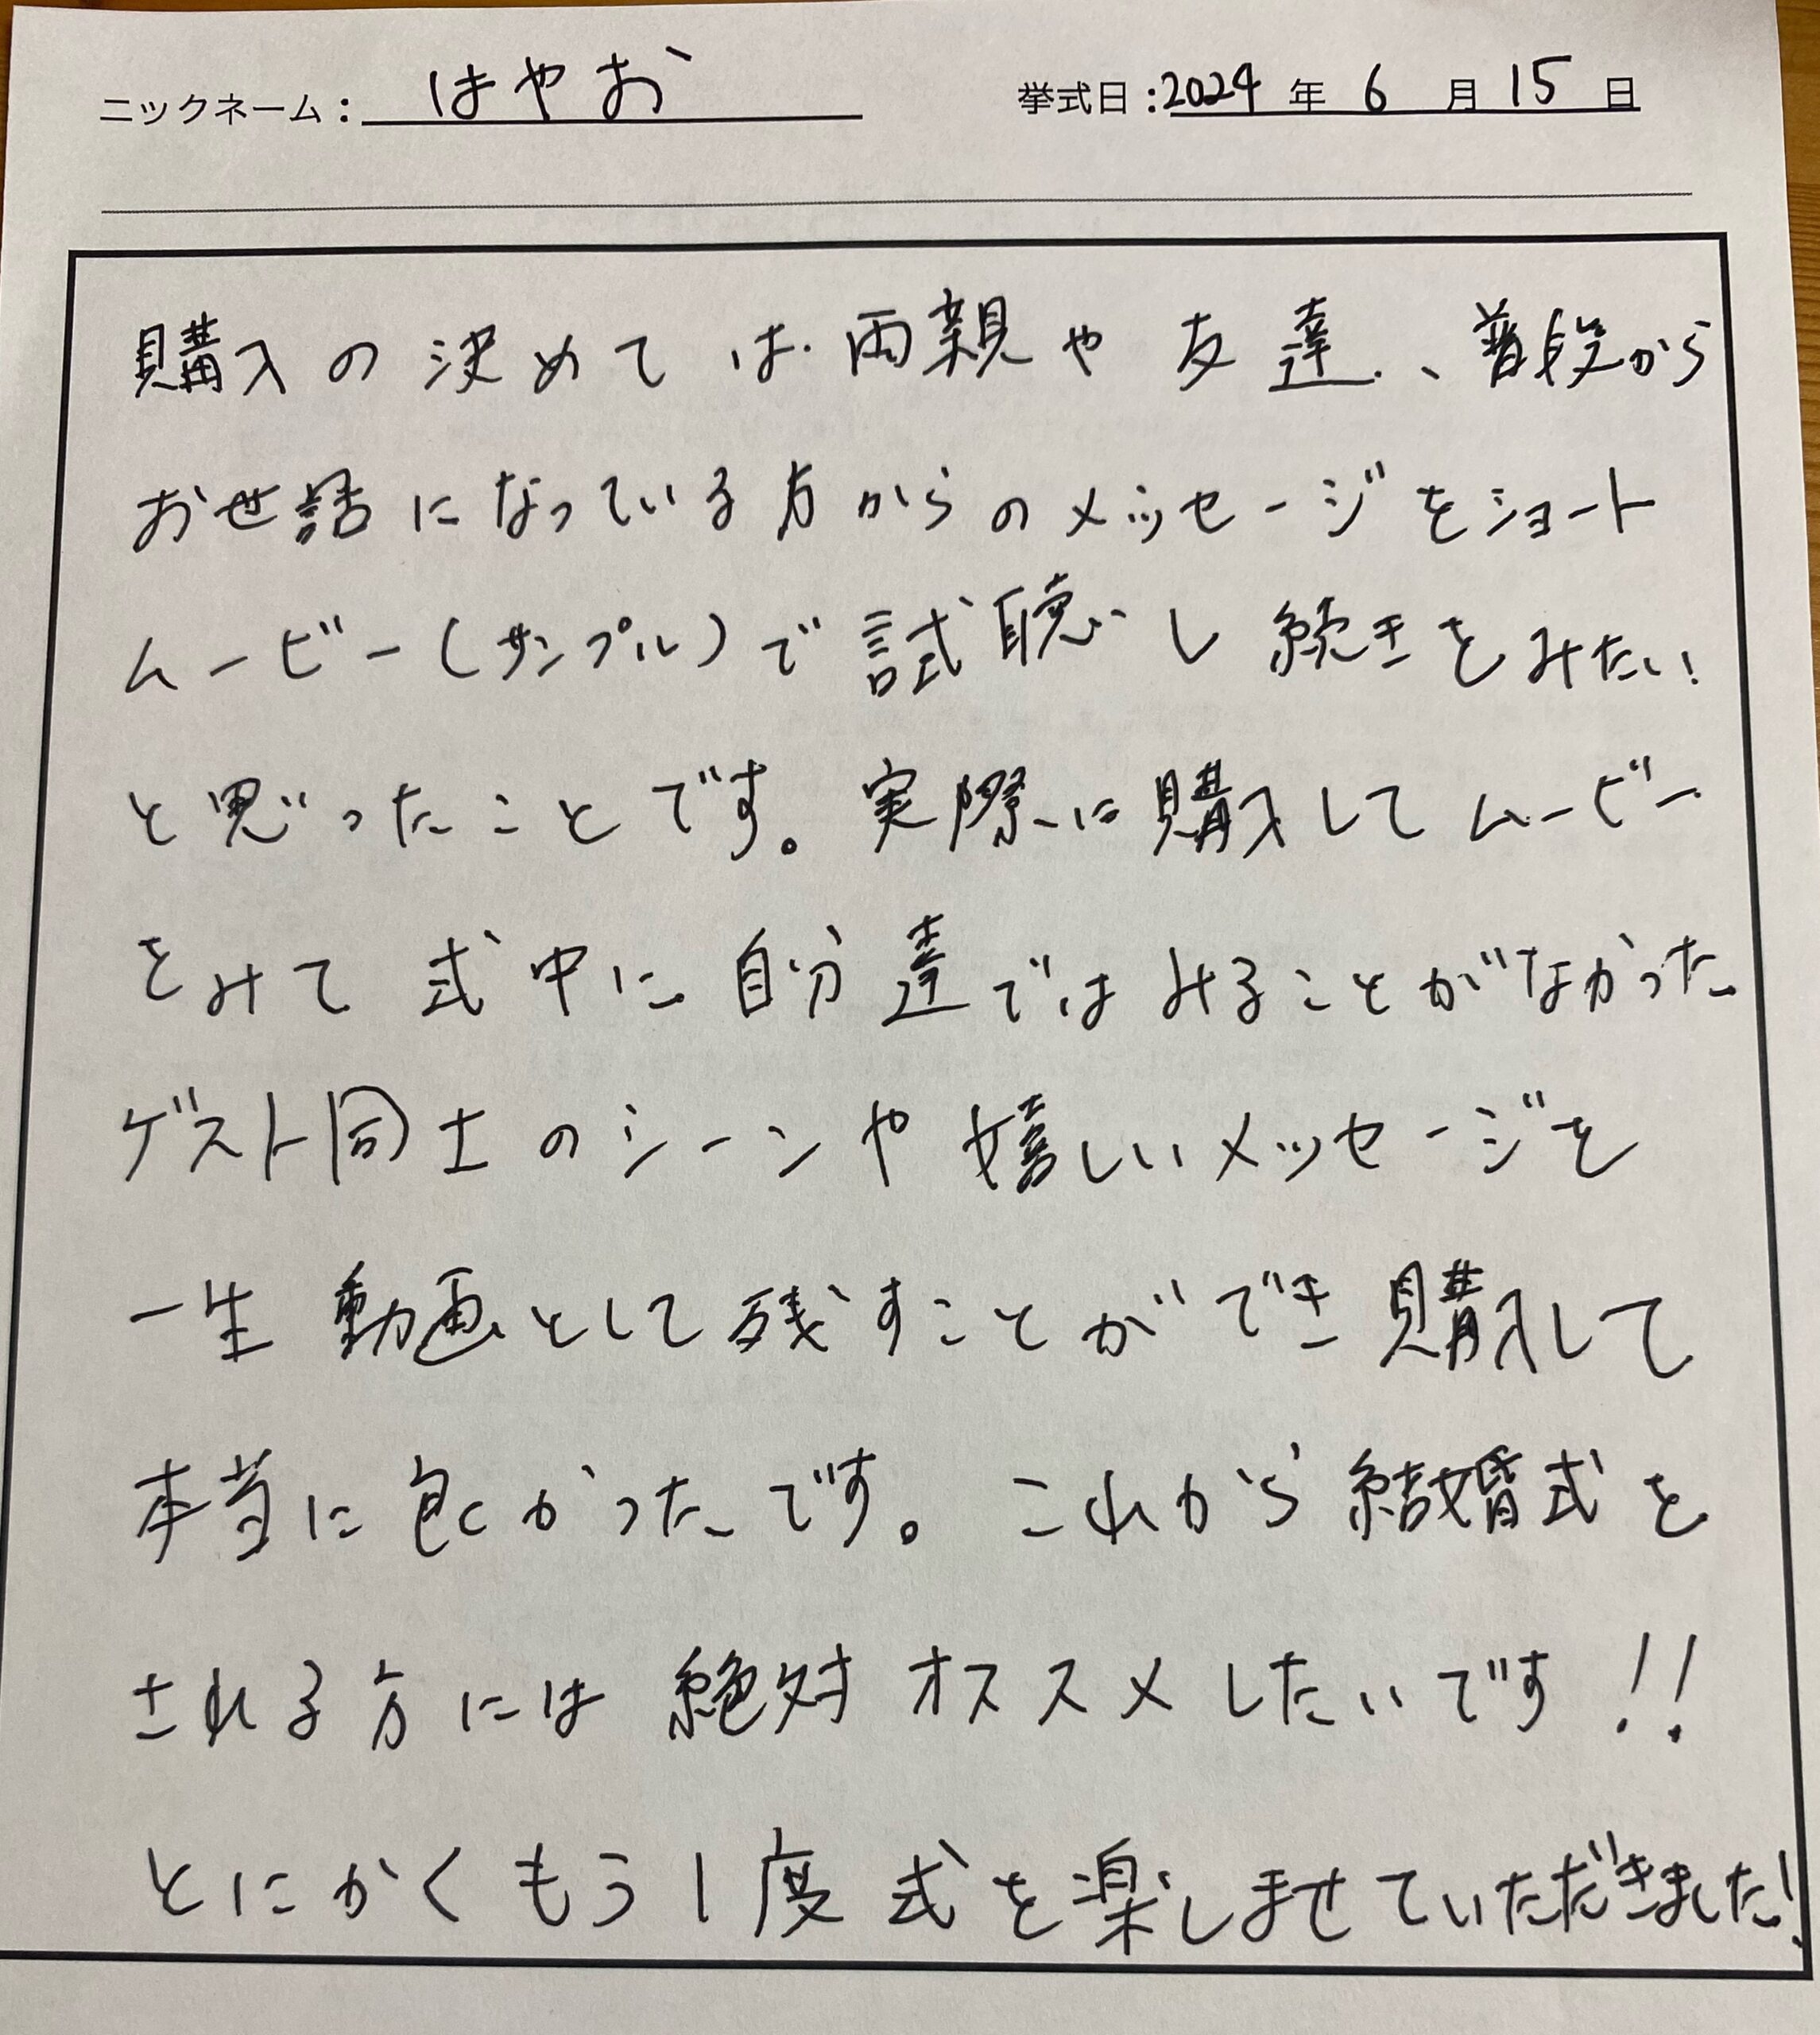 ニックネーム：はやお 挙式日：2024年6月15日
購入の決めては両親や友達、普段から
お世話になっている方からのメッセージをショート
ムービー(サンプル)で試聴し続きをみたい!
と思ったことです。実際に購入してムービー
をみて式中に自分達ではみることがなかった
ゲスト同士のシーンや嬉しいメッセージを
一生動画として残すことができ購入して
本当に良かったです。これから結婚式を
される方には絶対オススメしたいです!!
とにかくもう1度式を楽しませていただきました!